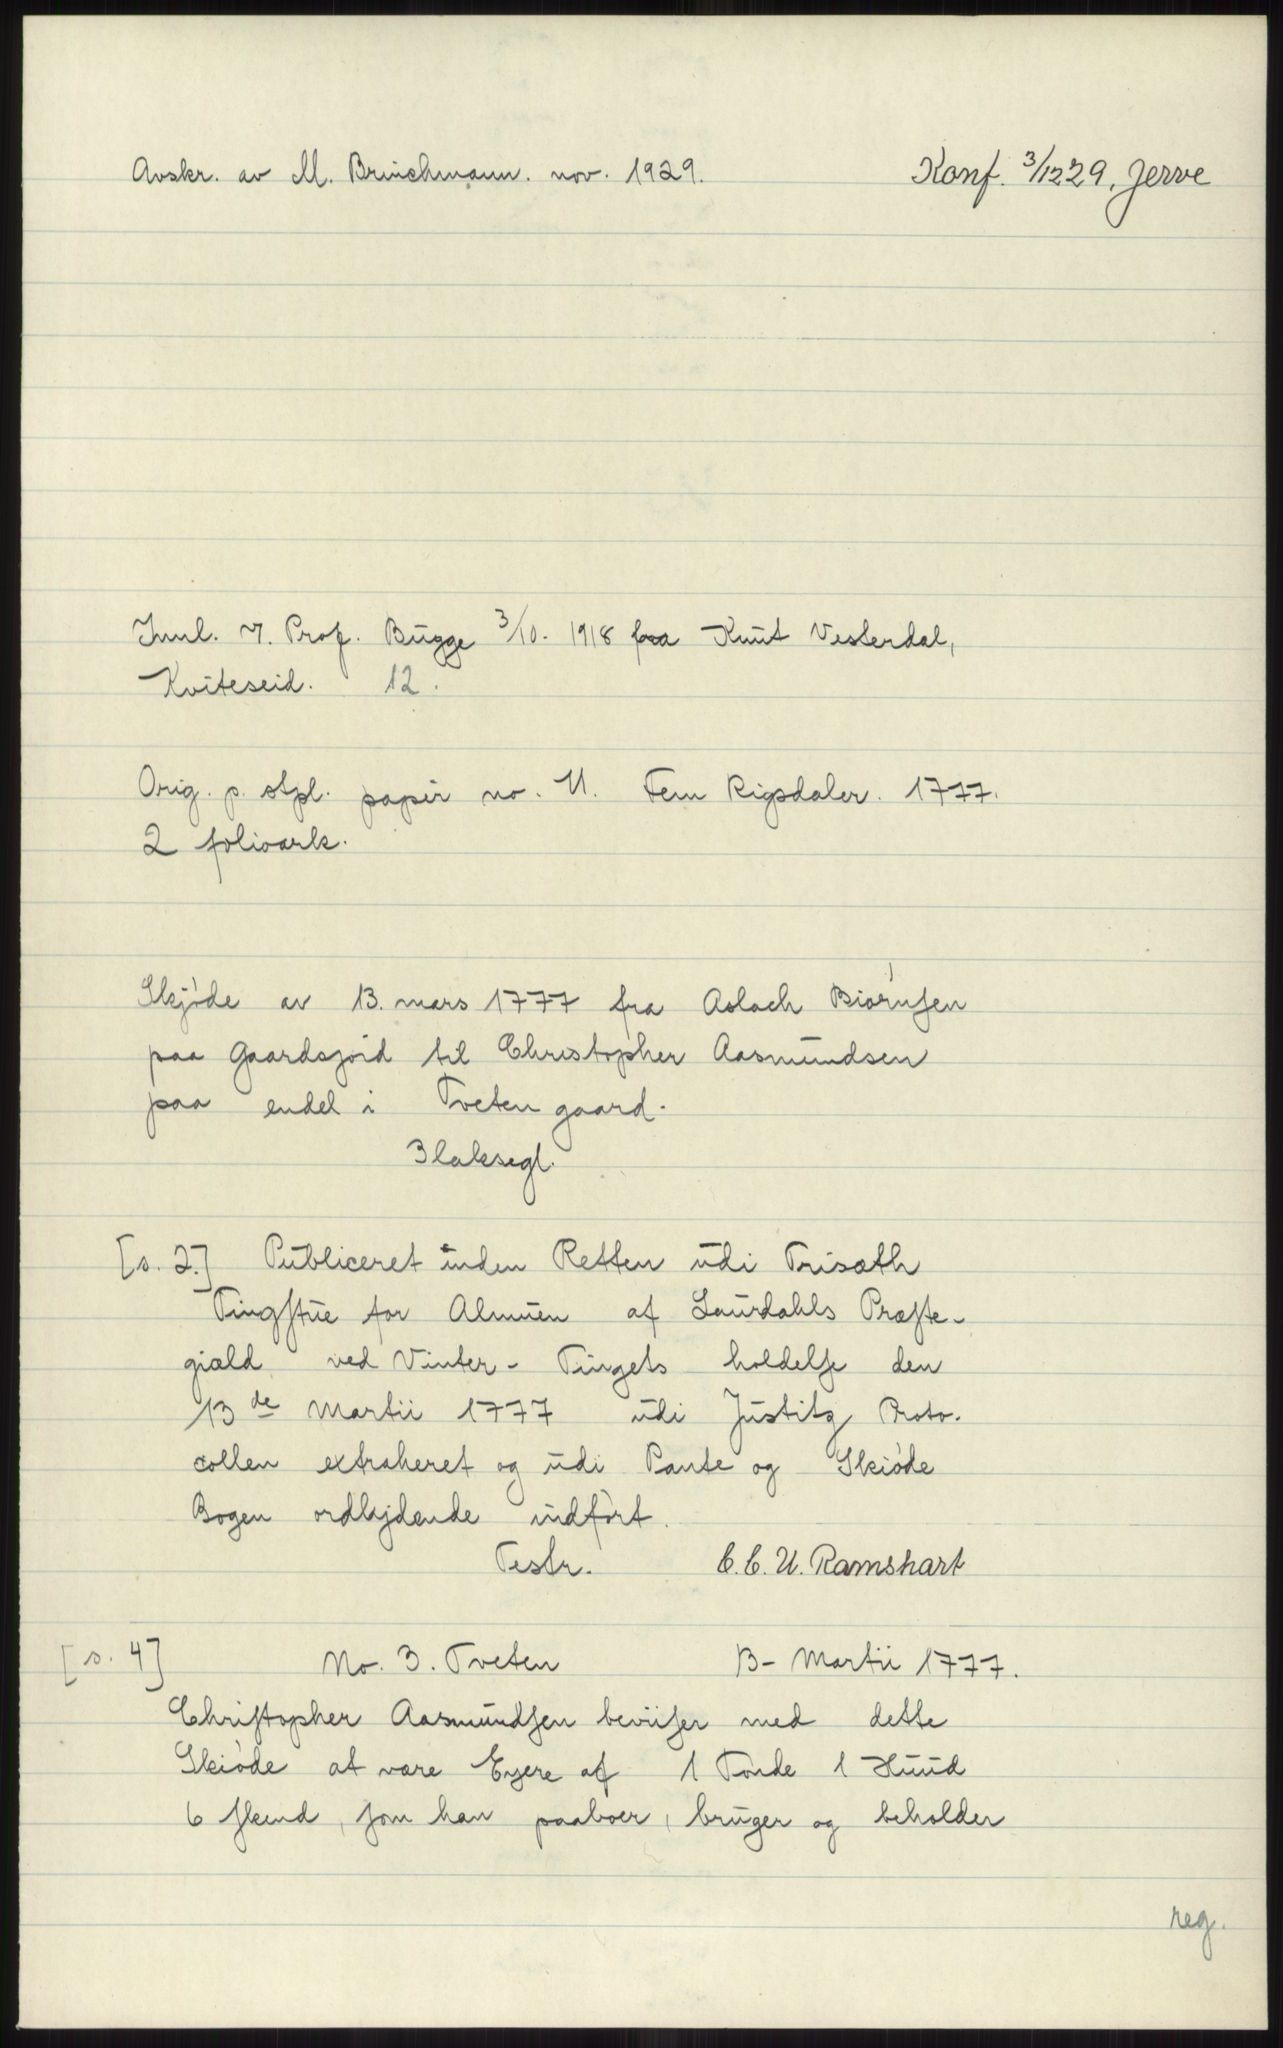 Avskr. av M. Brinchmann. nov. 1929.
Konf. 3/12 29, Jerve
Innl. v. Prof. Bugge 3/10. 1918 fra Knut Vesterdal,
Kviteseid. 12.
Orig. p. stpl. papir no. 11. Fem Rigsdaler. 1777.
2 folioark.
Skjøde av 13. mars 1777 fra Aslach Biørnsen
paa Gaardsjord til Christopher Aasmundsen
paa endel i Tveten gaard.
3 laksegl.
[s. 2.] Publiceret inden Retten udi Trisæth
Tingstue for Almuen af Laurdahls Præste-
giæld ved Vinter-Tingets holdelse den
13de Martii 1777 udi Justitz Proto-
collen extraheret og udi Pante og Skiøde
Bogen ordlydende indført.
Testr. C. C. U. Ramshart
[s. 4] No. 3. Tveten 13- Martii 1777.
Christopher Aasmundsen beviiser med dette
Skiøde at være Eyere af 1 Tønde 1 Huud
6 skind, som han paaboer, bruger og beholder
reg.